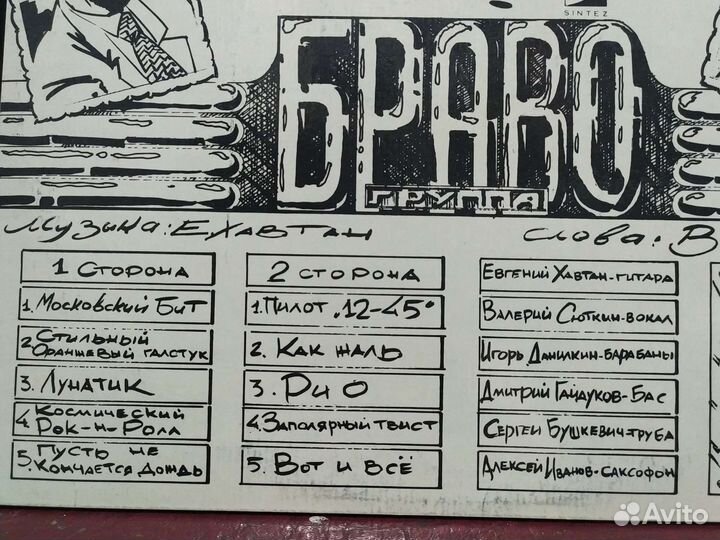 SINTEZ
БРАВО
ГРУППА
Музыка: Е.Хавтан
слова: В
1 сторона
1. Московский Бит
2. Стильный
Оранжевый галстук
3. Лунатик
4. Космический
Рок-н-Ролл
5. Пусть не
Кончается Дождь
2 сторона
1. Пилот „12-45"
2. Как жаль
3. Рио
4. Заполярный твист
5. Вот и всё
Евгений Хавтан-гитара
Валерий Сюткин-вокал
Игорь Данилкин-барабаны
Дмитрий Гайдуков-Бас
Сергей Бушкевич-труба
Алексей Иванов-саксофон
Avito